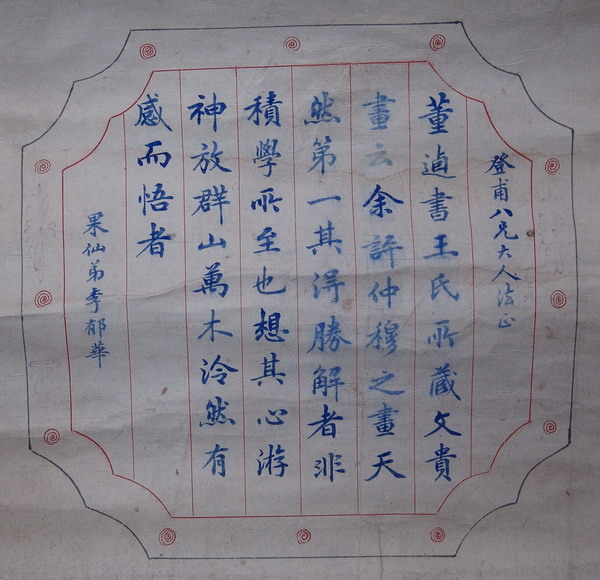 登甫八兄大人法正
董逌書王氏所藏文貴
畫云余評仲穆之畫天
然第一其得勝解者非
積學所至也想其心游
神放群山萬木泠然有
感而悟者
果仙弟李郁華